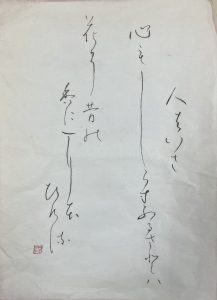 人はいさ
心もしらすふるさとハ
花そ昔の
香ににほ
ひける